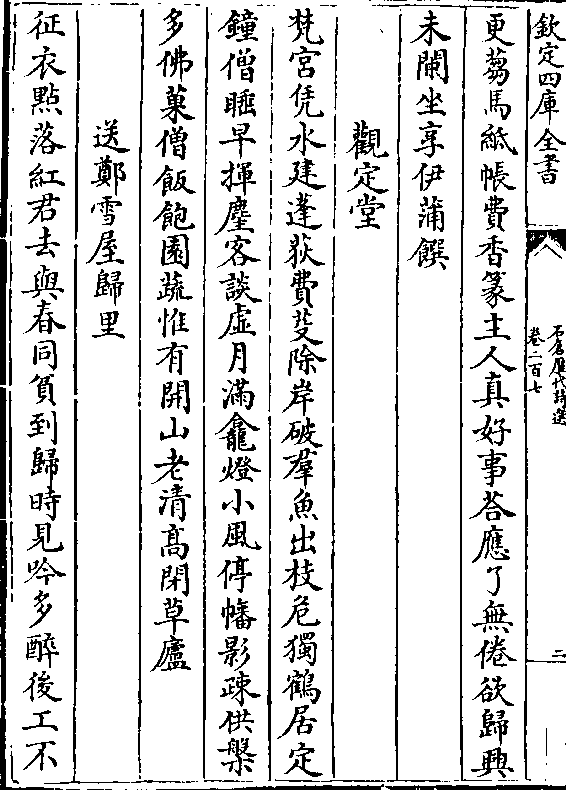 欽定四庫全書
石倉歷代詩選
卷二百七
二
更蒭馬紙帳費香篆主人真好事荅應了無倦欲歸興
未闌坐享伊蒲饌
觀定堂
梵宮凭水建蓬荻費芟除岸破羣魚出枝危獨鶴居定
鐘僧睡早揮麈客談虛月滿龕燈小風停幡影疎供槃
多佛菓僧飯飽園蔬惟有開山老清髙閉草廬
送鄭雪屋歸里
征衣點落紅君去與春同貧到歸時見吟多醉後工不